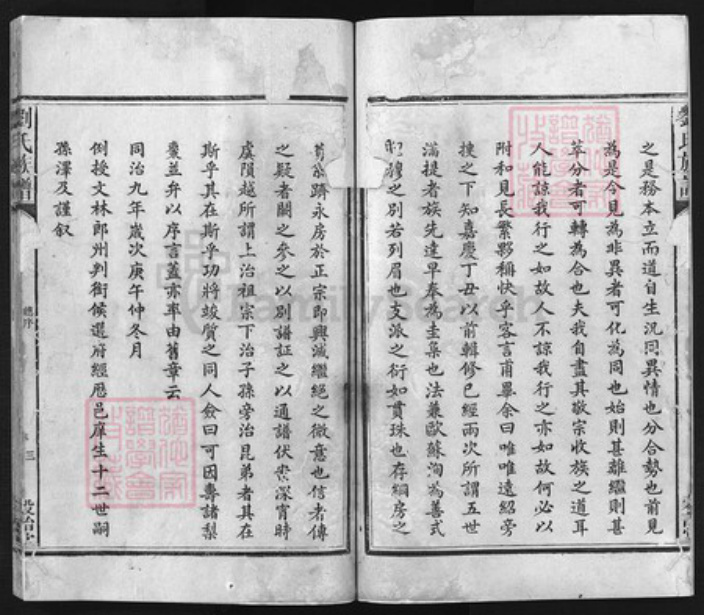 之是務本立而道自生況同異情也分合勢也前見
為是今見為非異者可化為同也始則甚離繼則甚
萃分者可轉為合也夫我自盡其敬宗收族之道耳
人能諒我行之如故人不諒我行之亦如故何必以
附和見長繁夥稱快乎客言甫畢余曰唯唯遠紹旁
搜之下知嘉慶丁丑以前輯修已經兩次所謂五世
滿提者族先達早奉為圭臬也法兼歐蘇洵為善式
昭穆之別若列眉也支派之衍如貫珠也存綱房之
躋永房於正宗即興滅繼絕之微意也信者傳
之疑者闕之參之以別譜証之以通譜伏祟深宵時
虞隕越所謂上治祖宗下治子孫旁治昆弟者其在
斯乎其在斯乎功將竣質之同人僉曰可因壽諸梨
棗並弁以序言蓋亦率由舊章云
同治九年歲次庚午仲冬月
例授文林郎州判銜候選府經歷邑庠生十二世嗣
孫澤及謹叙
劉氏族譜
總序
三